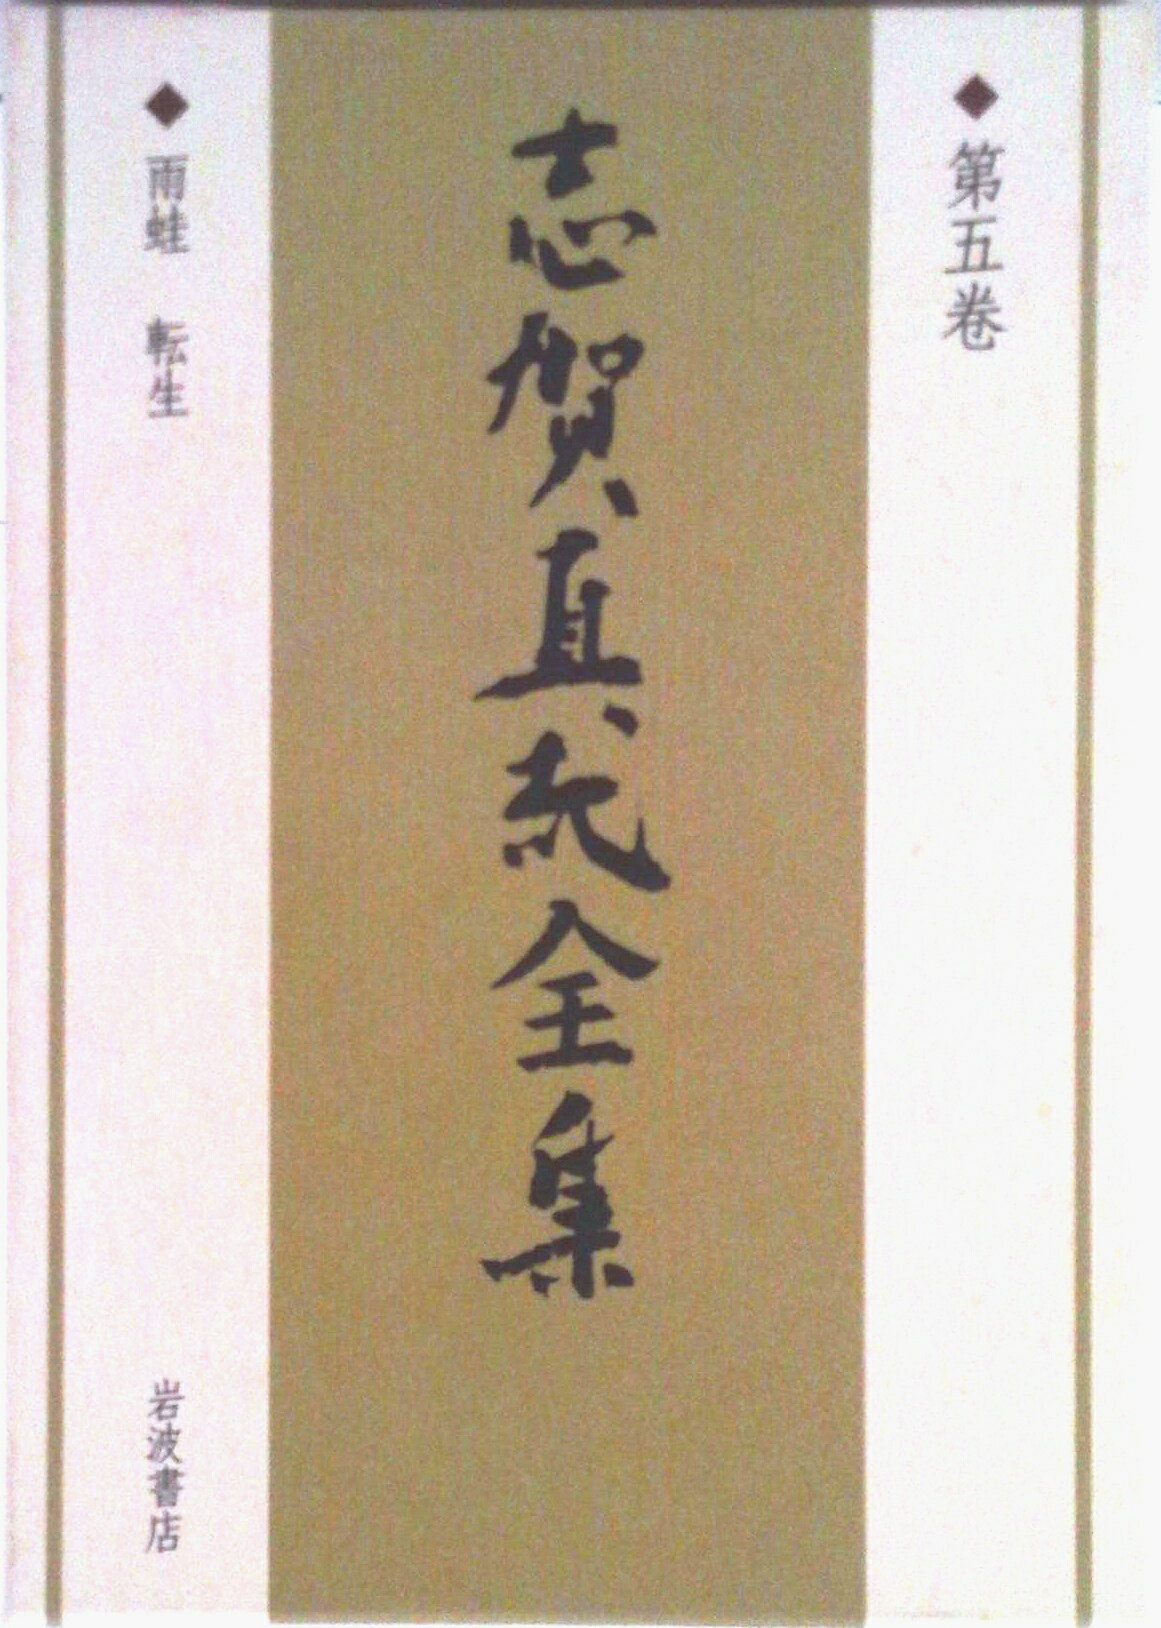 ◆ 第五巻
志賀直哉全集
◆ 雨蛙 転生
岩波書店